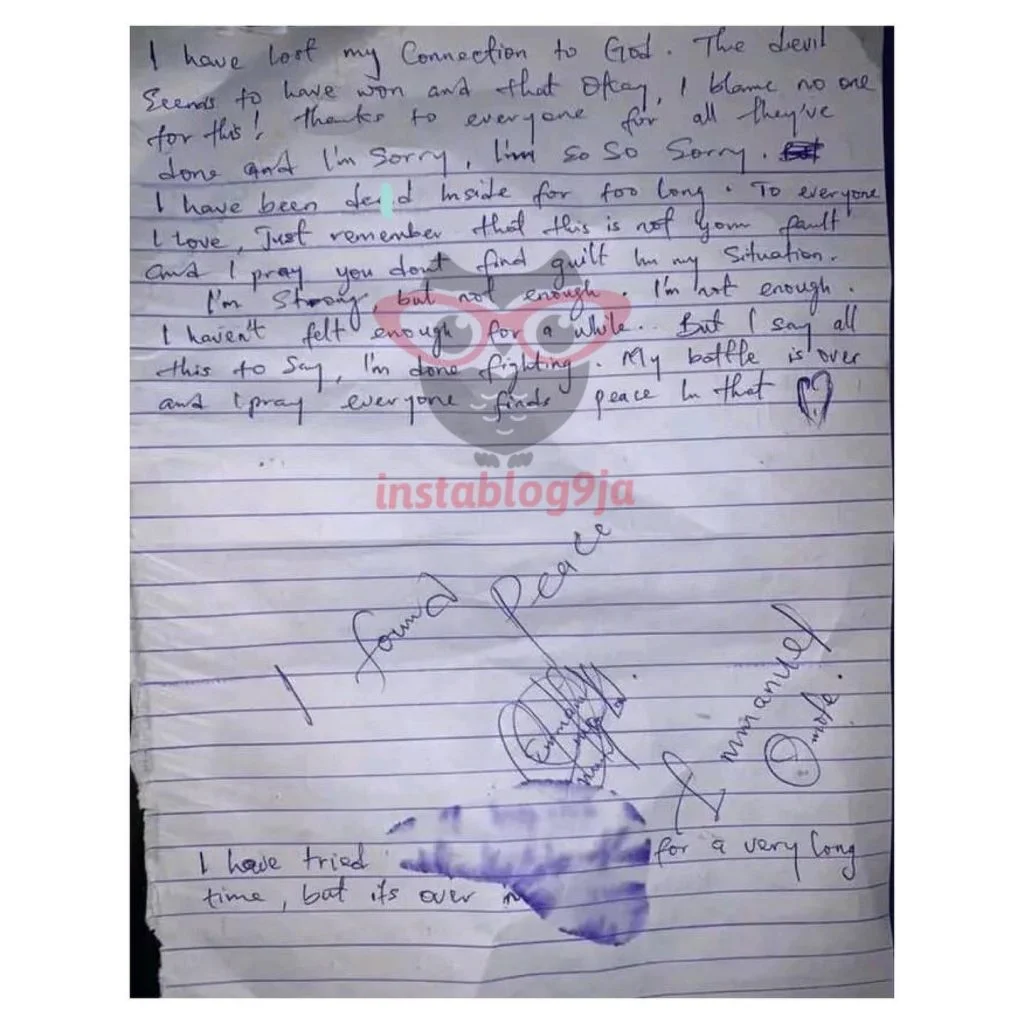 I have lost my Connection to God. The devil
Seems to have won and that Okay, I blame no one
for this! thanks to everyone for all they've
done and I'm Sorry, I'm so so Sorry.
I have been dead Inside for too long. To everyone
I love, Just remember that this is not your fault
and I pray you dont find guilt In my Situation.
I'm Strong, but not enough. I'm not enough.
I haven't felt enough for a while.. But I say all
this to Say, I'm done fighting. My battle is over
and I pray everyone finds peace In that
instablog9ja
I found Peace
Emmanuel
Omole.
I have tried for a very long
time, but its over